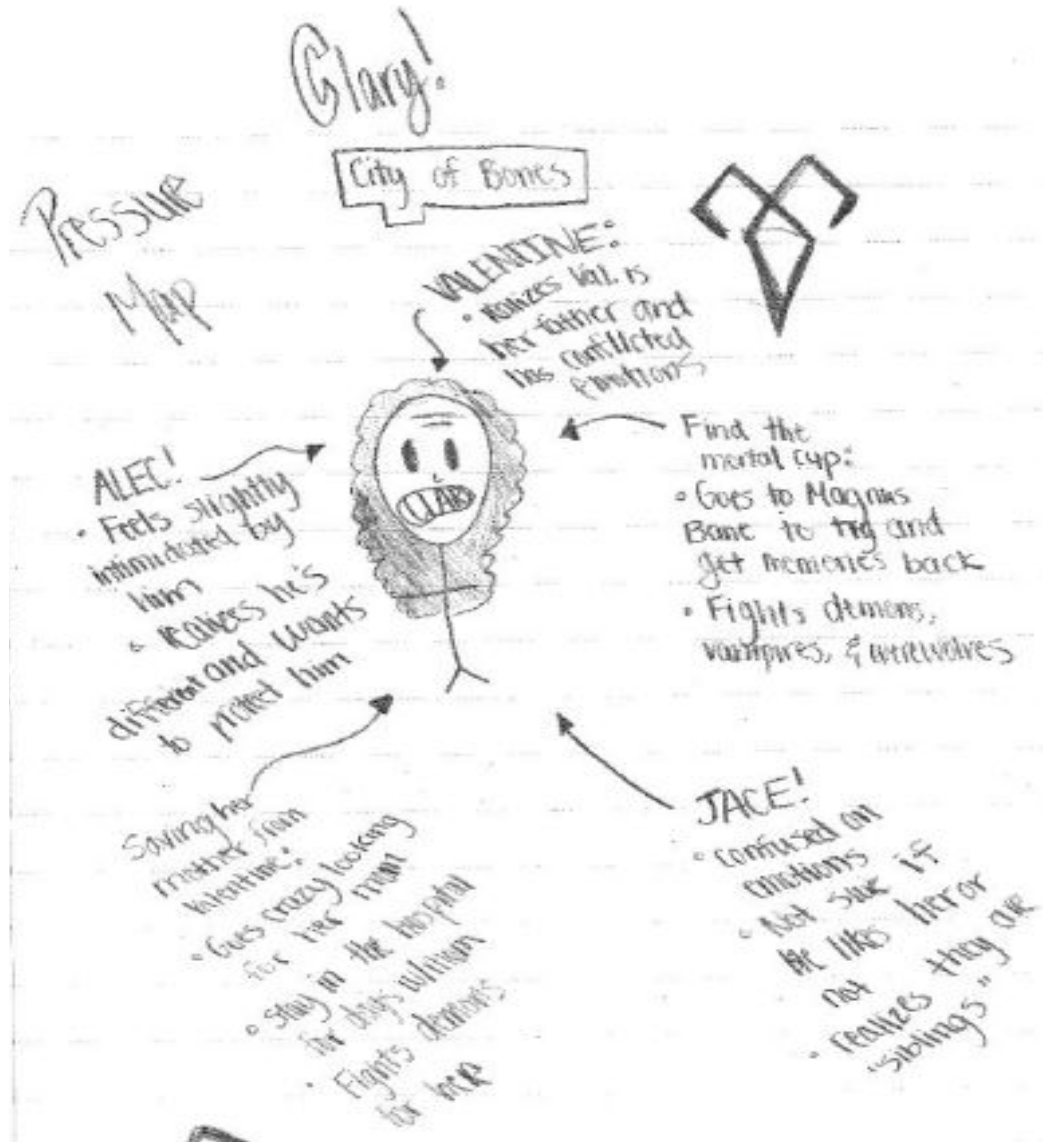 Clary!
City of Bones
Pressure
Map
VALENTINE:
• realizes Val. is
her father and
has conflicted
emotions
ALEC!
• Feels slightly
intimidated by
him
• realizes he's
different and wants
to protect him
CLARY
Find the
mortal cup:
• Goes to Magnus
Bane to try and
get memories back
• Fights demons,
vampires, & werewolves
Saving her
mother from
Valentine:
• Goes crazy looking
for her mom
• stay in the hospital
for days
• Fights demons
for her
JACE!
• confused on
emotions
• Not sure if
he likes her or
not
• realizes they are
"siblings"